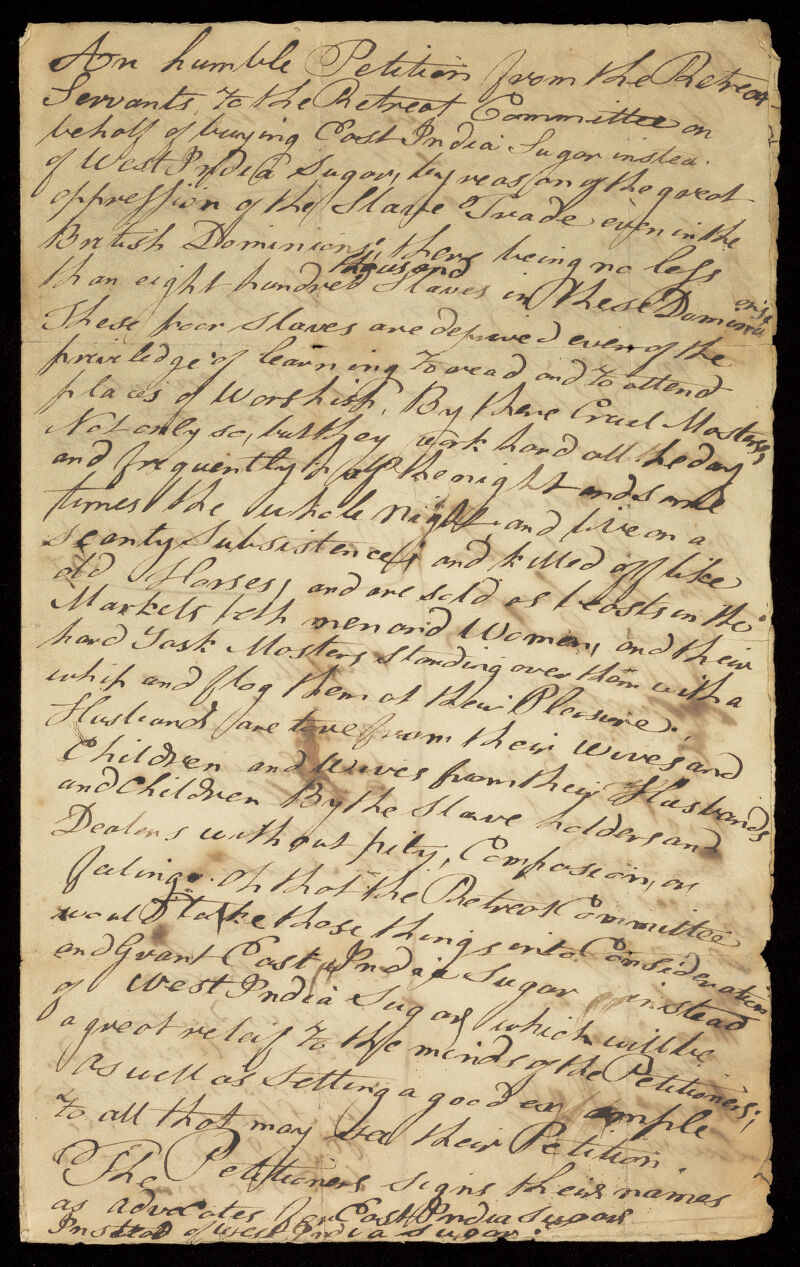 An humble Petition from the Retreat
Servants, To the Retreat Committee on
behalf of buying East India Sugar instea
of West India Sugar, by reason of the great
oppression of the Slave Trade even in the
British Dominions; there being no less
than eight hundred thousand Slaves in these Dominions
These poor slaves are deprived even of the
priviledge of learning To read and To attend
places of Worship, By there Cruel Masters,
Not only so, but they work hard all the day
and frequently half the night and some
times the whole night, and live on a
scanty Subsistence; and killed off like
old Horses, and are sold as beasts in the
Markets both men and Women, and their
hard Task Masters standing over them with a
whip and flog them at their Pleasure.,
Husbands are tore from their wives and
Children and Wives from their Husbands
and Children By the Slave holders and
Dealers without pity, Compasion, or
feeling. Oh that the Retreat Committee
would take these things into Consideration
and Grant East India Sugar instead
of West India Sugar which will be
a great relaif To the minds of the Petitioners;
as well as setting a good example
To all that may see their Petition.
The Petitioners signs their names
as advocates for East India Sugar
Instead of West India Sugar.